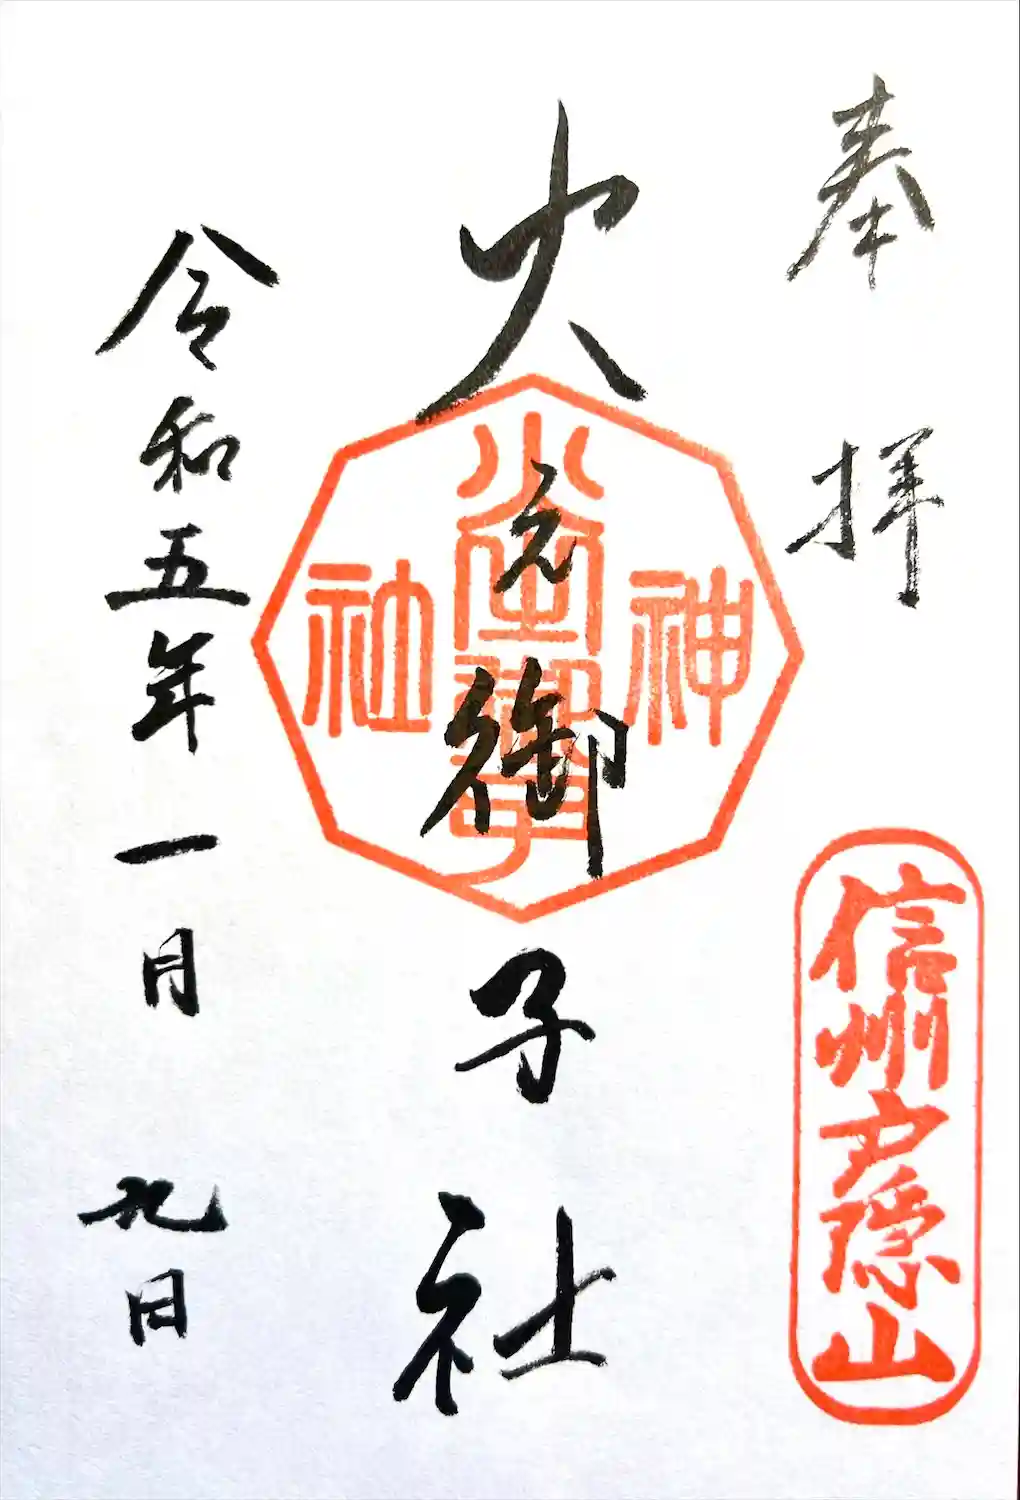 奉拝
信州戸隠山
火之御子社
火之御子
神社
令和五年一月九日